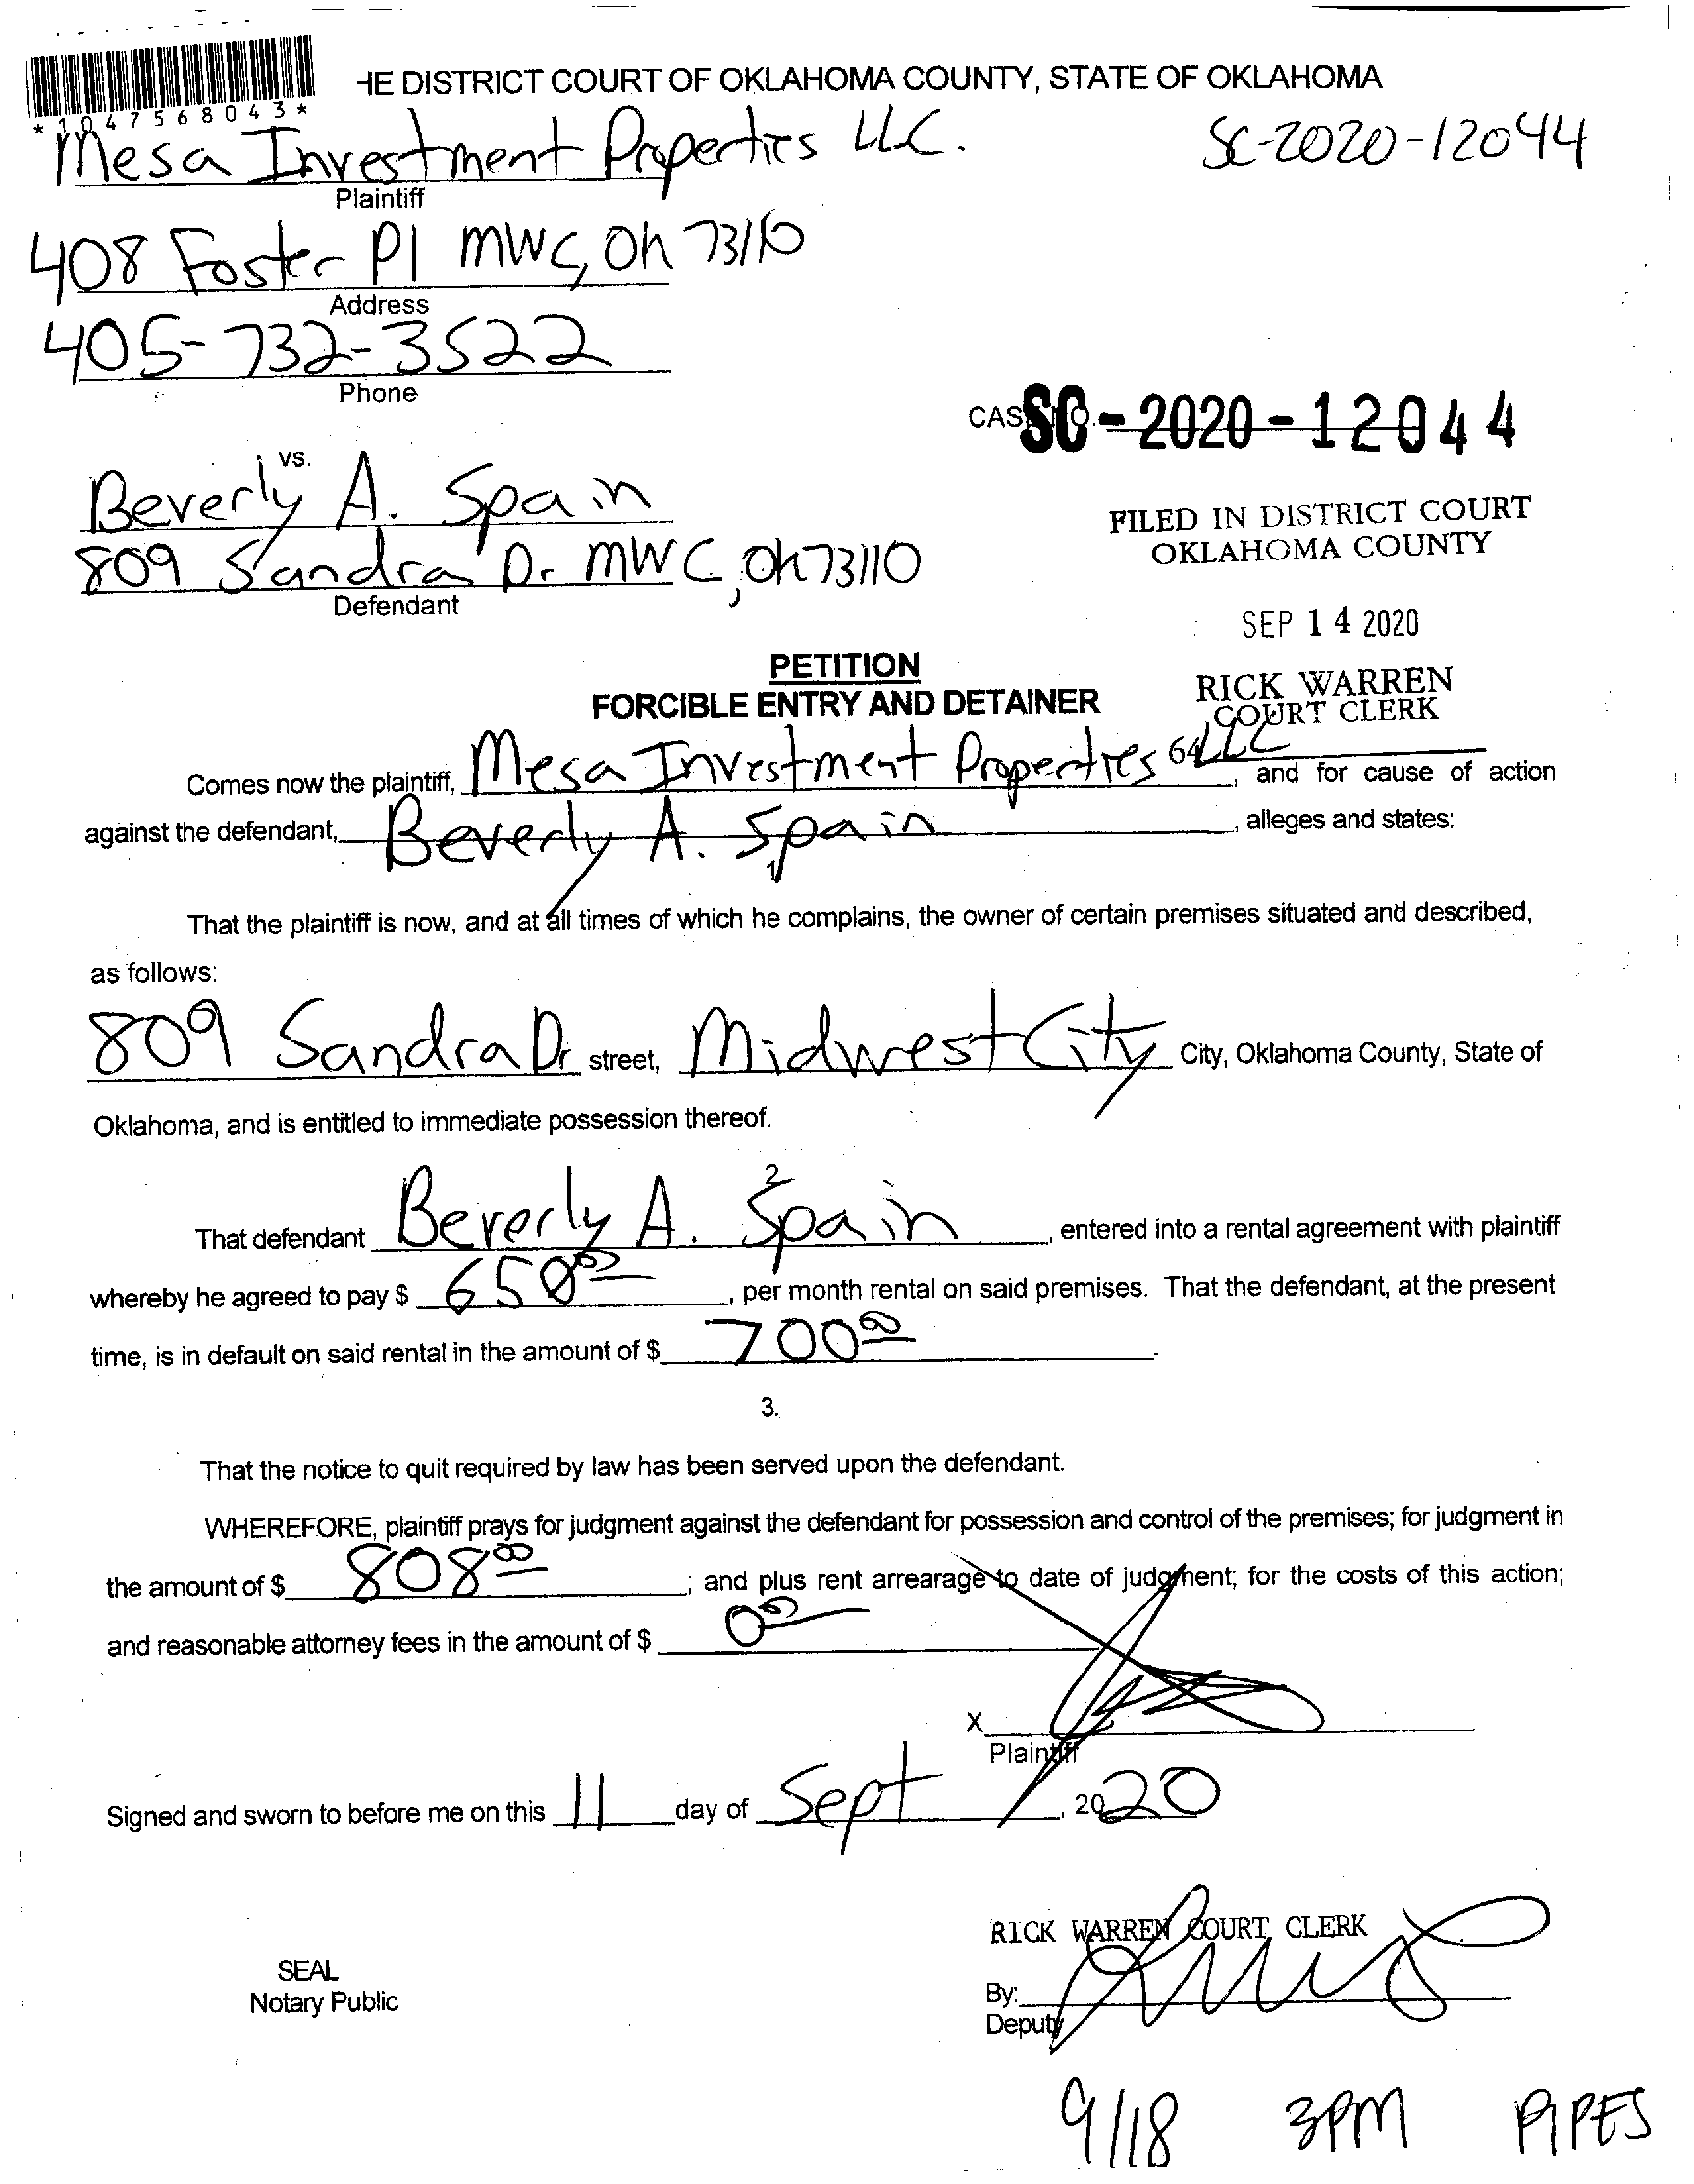 HE DISTRICT COURT OF OKLAHOMA COUNTY, STATE OF OKLAHOMA
*1047568043*
Mesa Investment Properties LLC.
SC-2020-12044
Plaintiff
408 Foster Pl MWC, Ok 73110
Address
405-732-3522
Phone
CASE NO. SC-2020-12044
vs.
Beverly A. Spain
809 Sandra Dr MWC, Ok 73110
Defendant
FILED IN DISTRICT COURT
OKLAHOMA COUNTY
SEP 14 2020
RICK WARREN
COURT CLERK
64
PETITION
FORCIBLE ENTRY AND DETAINER
Comes now the plaintiff, Mesa Investment Properties LLC, and for cause of action
against the defendant, Beverly A. Spain, alleges and states:
1
That the plaintiff is now, and at all times of which he complains, the owner of certain premises situated and described,
as follows:
809 Sandra Dr street, Midwest City City, Oklahoma County, State of
Oklahoma, and is entitled to immediate possession thereof.
2
That defendant Beverly A. Spain, entered into a rental agreement with plaintiff
whereby he agreed to pay $ 650 00, per month rental on said premises. That the defendant, at the present
time, is in default on said rental in the amount of $ 700 00.
3.
That the notice to quit required by law has been served upon the defendant.
WHEREFORE, plaintiff prays for judgment against the defendant for possession and control of the premises; for judgment in
the amount of $ 808 00; and plus rent arrearage to date of judgment; for the costs of this action;
and reasonable attorney fees in the amount of $ 0 00
X
Plaintiff
Signed and sworn to before me on this 11 day of Sept, 2020
RICK WARREN COURT CLERK
SEAL
Notary Public
By:
Deputy
9/18 3PM PIPES